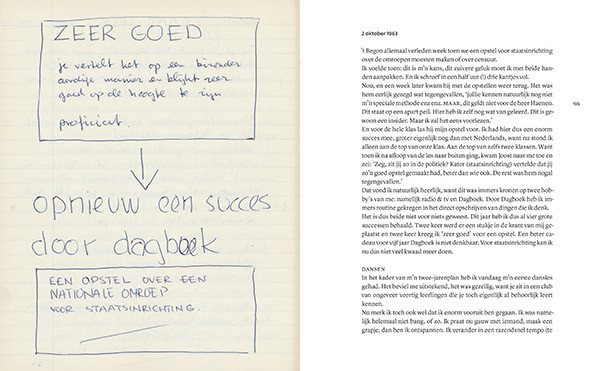 ZEER GOED
je vertelt het op een bizonder
aardige manier en blijkt zeer
goed op de hoogte te zijn
proficiat.
opnieuw een succes
door dagboek
EEN OPSTEL OVER EEN
NATIONALE OMROEP
VOOR STAATSINRICHTING.
2 oktober 1963
't Begon allemaal verleden week toen we een opstel voor staatsinrichting
over de omroepen moesten maken of over censuur.
Ik voelde toen: dit is m'n kans, dit zuivere geluk moet ik met beide han-
den aanpakken. En ik schreef in een half uur (!) drie kantjes vol.
Nou, en een week later kwam hij met de opstellen weer terug. Het was
hem eerlijk gezegd wat tegengevallen, 'jullie kennen natuurlijk nog niet
m'n speciale methode enz enz. MAAR, dit geldt niet voor de heer Haenen.
Dit staat op een apart peil. Hier heb ik zelf nog wat van geleerd. Dit is ge-
woon een insider. Maar ik zal het eens voorlezen.'
En voor de hele klas las hij mijn opstel voor. Ik had hier dus een enorm
succes mee, groter eigenlijk nog dan met Nederlands, want nu stond ik
alleen aan de top van onze klas. Aan de top van zelfs twee klassen. Want
toen ik na afloop van de les naar buiten ging, kwam Joost naar me toe en
zei: 'Zeg, zit jij zo in de politiek? Kater (staatsinrichting) vertelde dat jij
zo'n goed opstel gemaakt had, beter dan wie ook. De rest was hem nogal
tegengevallen.'
Dat vond ik natuurlijk heerlijk, want dit was immers kronen op twee hob-
by's van me: namelijk radio & tv en Dagboek. Door Dagboek heb ik im-
mers routine gekregen in het direct opschrijven van dingen die ik denk.
Het is dus beide niet voor niets geweest. Dit jaar heb ik dus al vier grote
successen behaald. Twee keer werd er een stukje in de krant van mij ge-
plaatst en twee keer kreeg ik 'zeer goed' voor een opstel. Een beter ca-
deau voor vijf jaar Dagboek is niet denkbaar. Voor staatsinrichting kan ik
nu dus niet veel kwaad meer doen.
DANSEN
In het kader van m'n twee-jarenplan heb ik vandaag m'n eerste dansles
gehad. Het beviel me uitstekend, het was gezellig, want je zit in een club
van ongeveer veertig leerlingen die je toch eigenlijk al behoorlijk leert
kennen.
Nu merk ik toch ook wel dat ik enorm vooruit ben gegaan. Ik was name-
lijk helemaal niet bang, of zo. Ik praat nu gauw met iemand, maak een
grapje, dan ben ik ontspannen. Ik verander in een razendsnel tempo (te